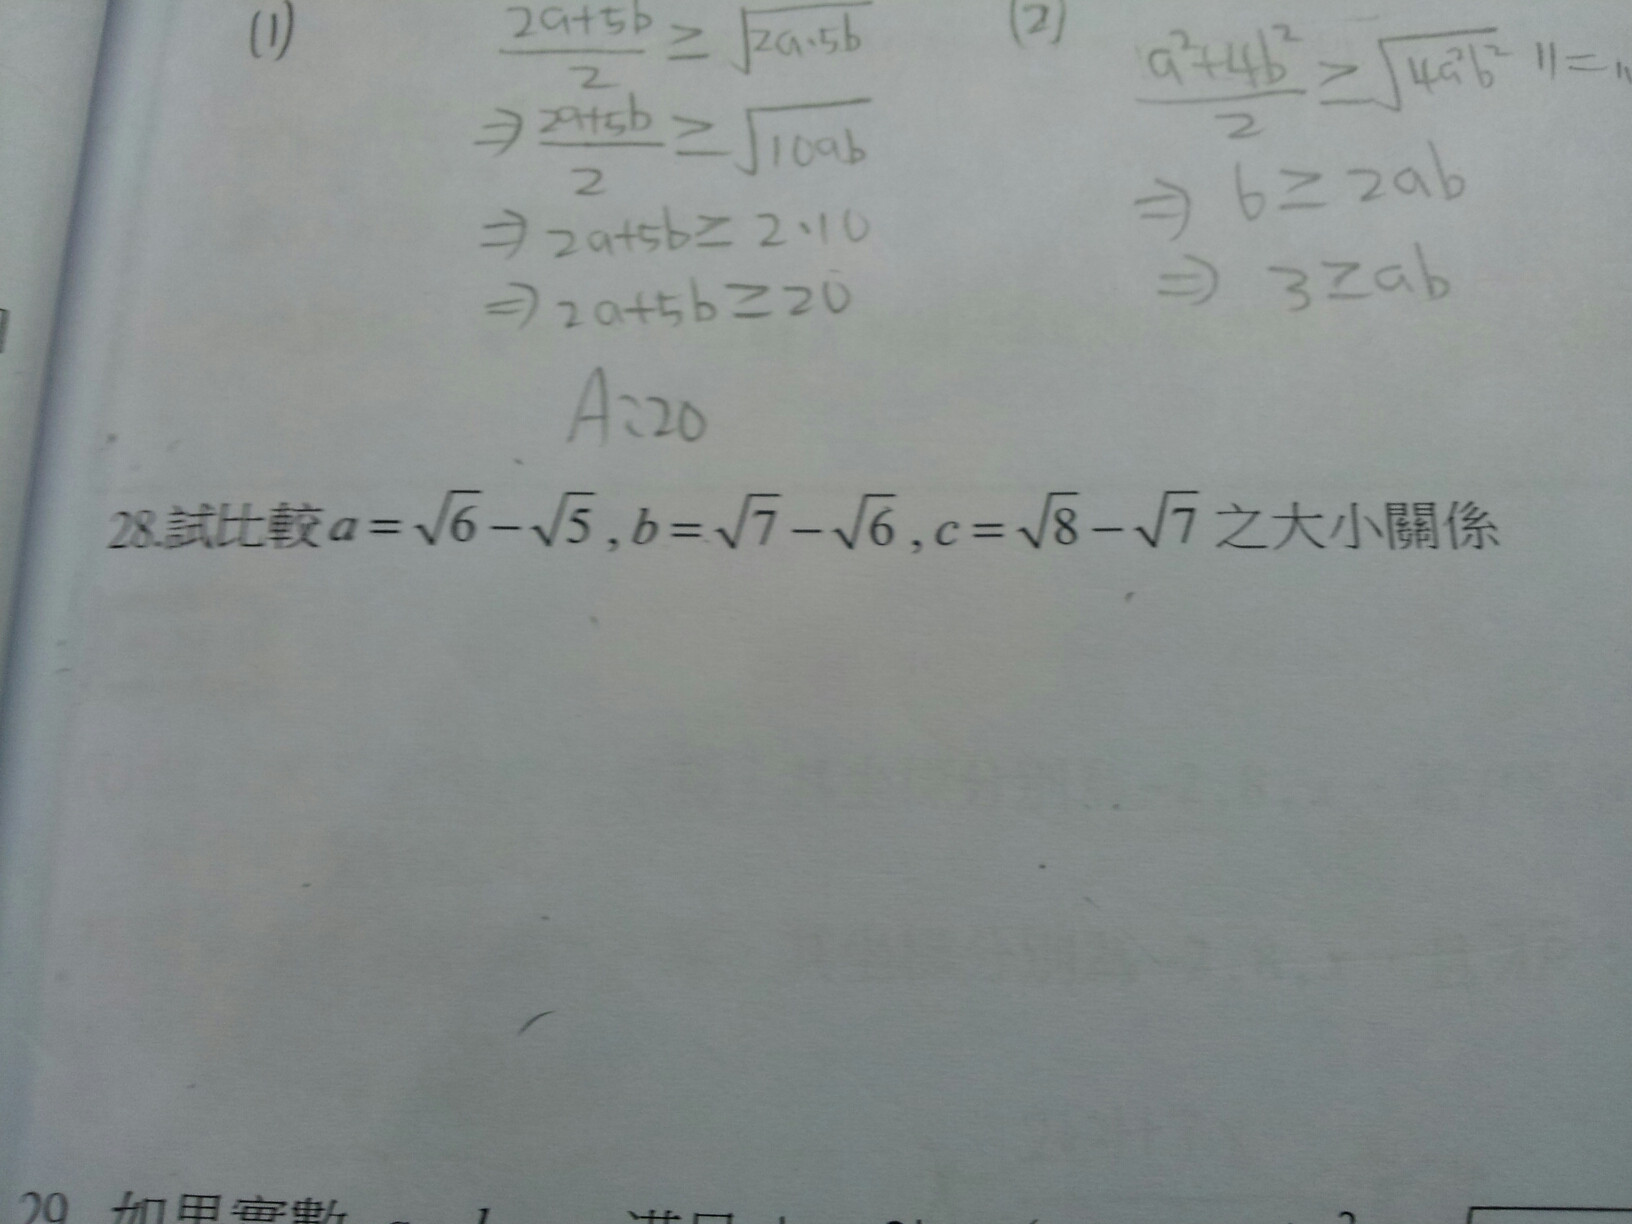 (1) (2+5b)/2 ≥ √(2a·5b)
⇒ (2a+5b)/2 ≥ √(10ab)
⇒ 2a+5b ≥ 2·10
⇒ 2a+5b ≥ 20
A:20
(2) (a²+4b²)/2 ≥ √(4a²b²) "="
⇒ 6 ≥ 2ab
⇒ 3 ≥ ab
28.試比較 a = √6 − √5 , b = √7 − √6 , c = √8 − √7 之大小關係
29 如果實數